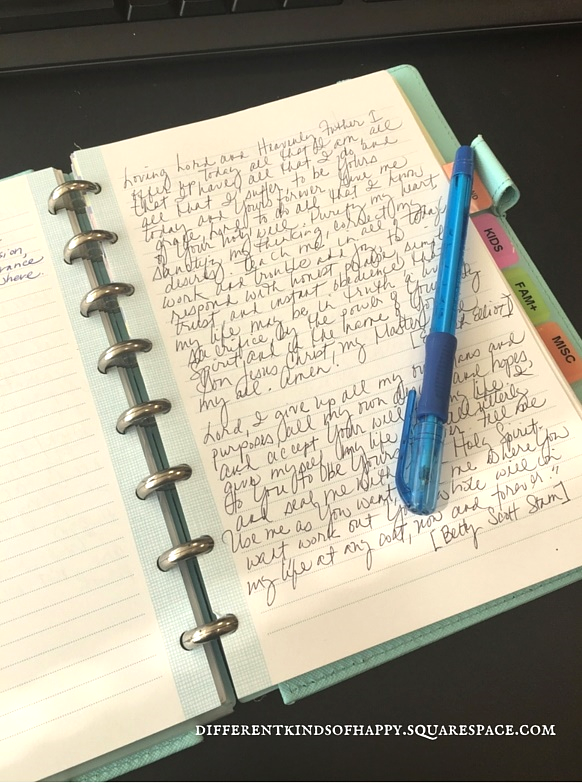 sion,
rance
where.
Loving Lord and Heavenly Father I
offer up today all that I am, all
that I have, all that I do and
all that I suffer to be Yours
today and Yours forever. Give me
grace, Lord, to do all that I know
of Your holy will. Purify my heart
sanctify my thinking, correct my
desires. Teach me in all of today's
work and trouble and joy to
respond with honest praise, simple
trust, and instant obedience, that
my life may be in truth a
sacrifice, by the power of Your
Spirit and in the name of Your
Son Jesus Christ, my Master
my all. Amen. Elliot]
Lord, I give up all my own plans and
purposes, all my own and hopes
and accept Your will my life. I
give myself, my life, my all utterly
to You to be Yours Seal
and seal me with Holy Spirit.
Use me as You want me where You
want work out Your whole will in
my life at any cost, now and forever."
[Betty Scott Stam]
KIDS
FAM+
MISC
DIFFERENTKINDSOFHAPPY.SQUARESPACE.COM